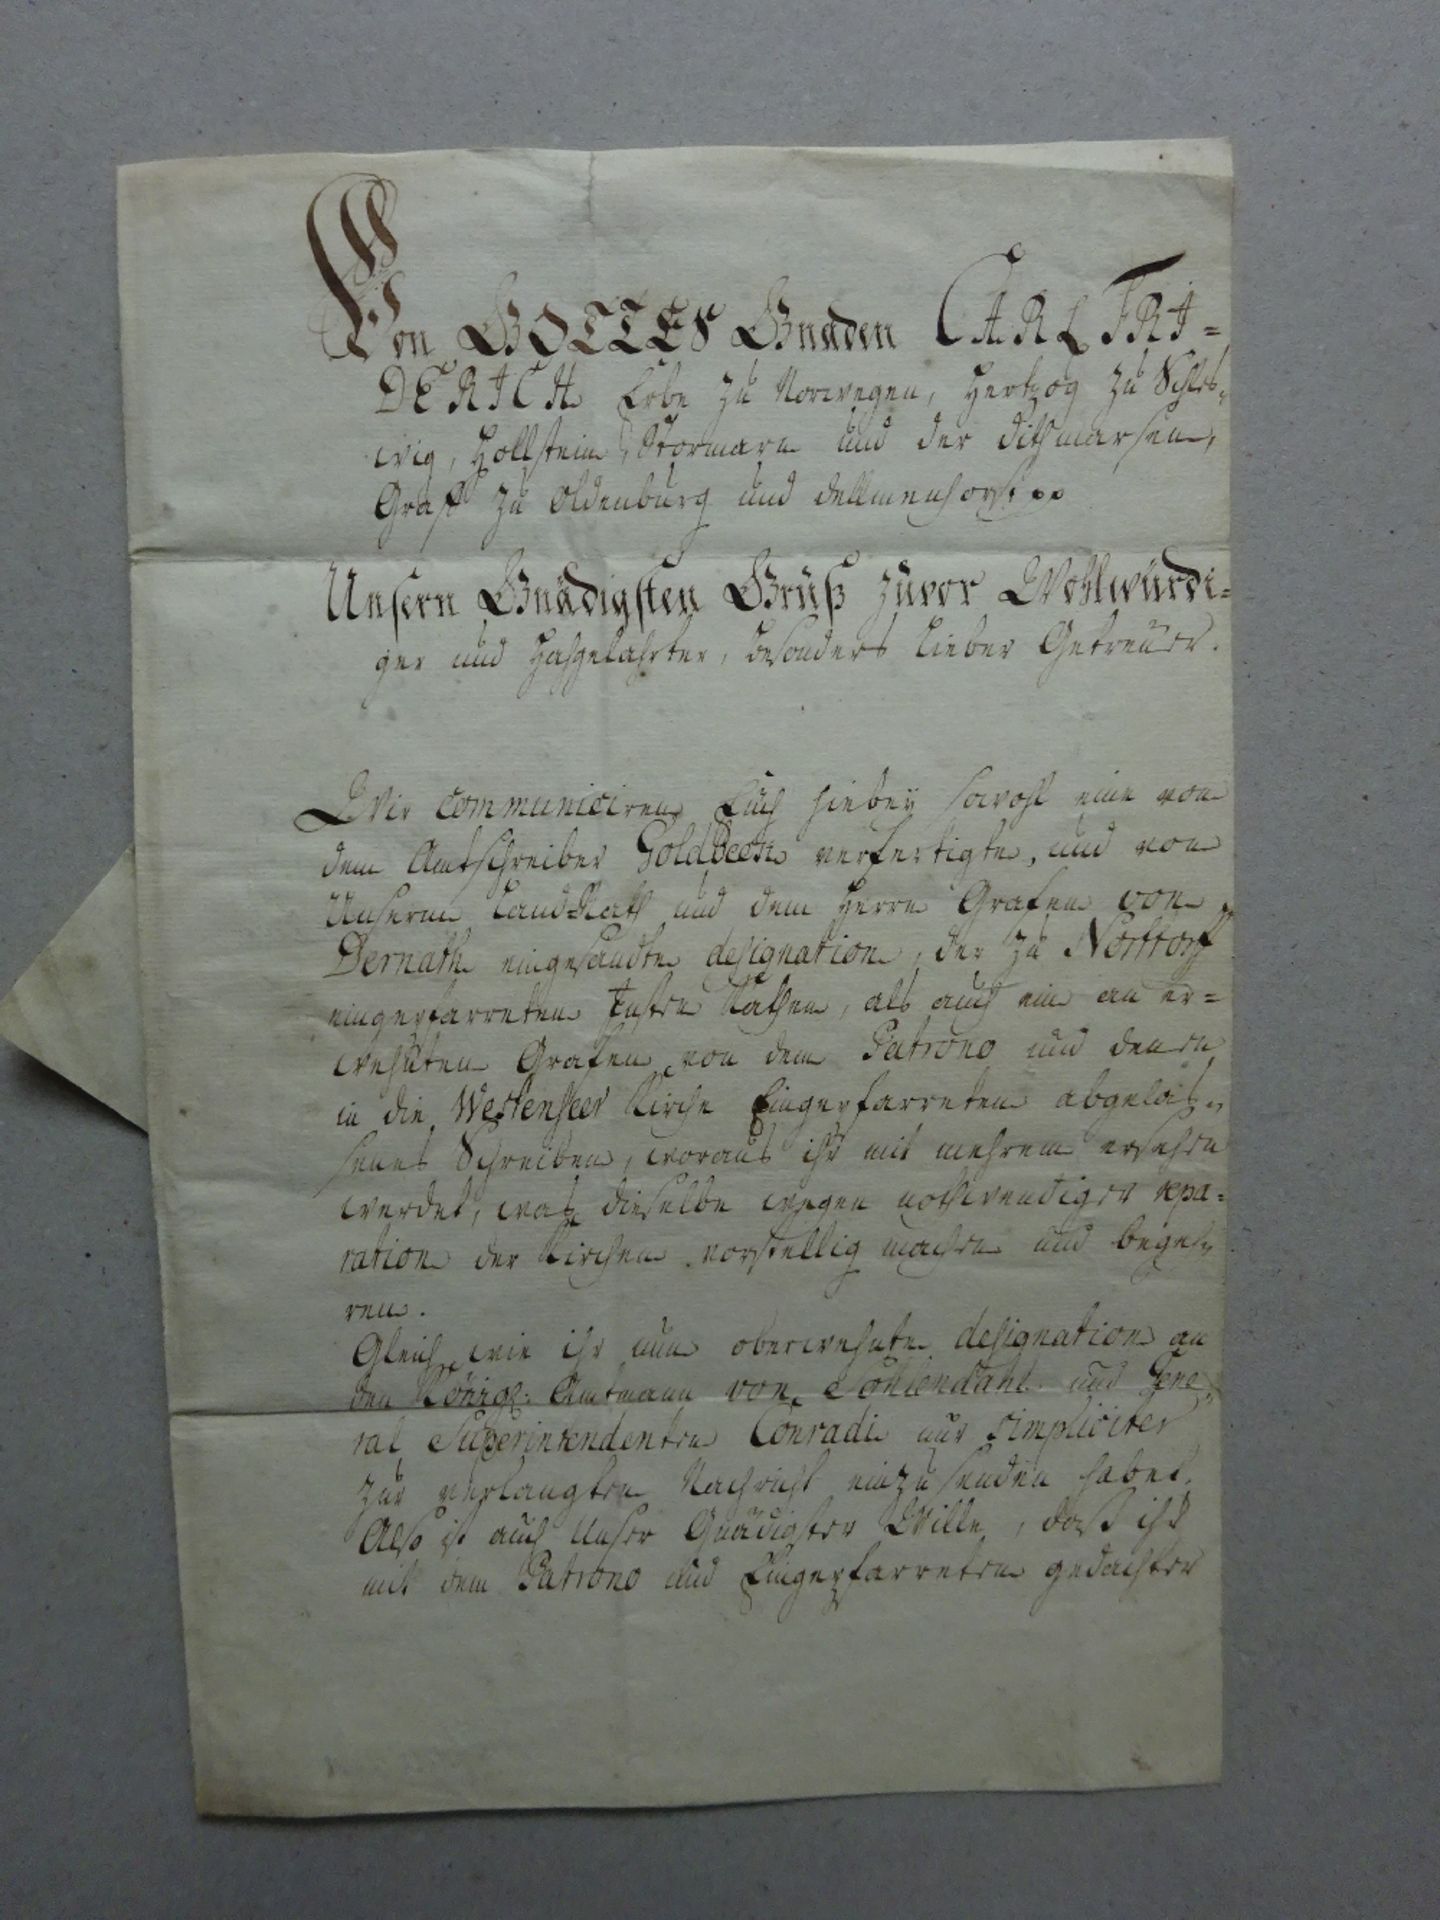 Von GOTTES Gnaden CARL FRI=
DERICH Erbe zu Norwegen, Hertzog zu Schles-
wig, Hollstein, Stormarn und der Dithmarsen,
Graff zu Oldenburg und Dellmenhorst pp
Unsern Gnädigsten Gruß zuvor Wohlwürdi=
ger und Hochgelahrter, besonders lieber Getreuer.
Wir communiciren Euch hiebey sowohl eine von
dem Amtschreiber verfertigte, und von
Unserm Land-Rath und dem Herrn Grafen von
Dernath eingesandte designation, der zu Nortorf
eingepfarreten Insten Kathen, als auch ein an er=
wehnten Grafen von dem Patrono und denen
in die Westenseer Kirche Eingepfarreten abgelas-
senes Schreiben, woraus ihr mit mehrem ersehen
werdet, was dieselbe wegen nothwendiger repa=
ration der Kirchen vorstellig machen und begeh-
ren.
Gleich wie ihr nun oberwehnte designation an
den Königl: Amtmann von und Gene-
ral Superintendenten Conradi nur simpliciter
zur verlangten Nachricht einzusenden habet.
Also ist auch Unser Gnädigster Wille, daß ihr
mit dem Patrono und Eingepfarreten gedachter